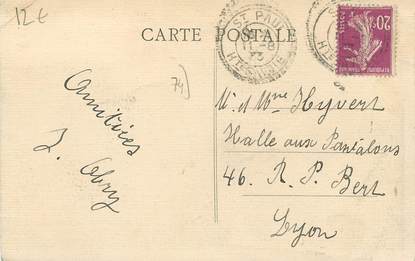 12€
CARTE POSTALE
ST PAUL
11-8
33
HTE
20c
74)
Amitiés
J. Abry
M. et Mme Hyvert
Halle aux Pantalons
46. R. P. Bert
Lyon